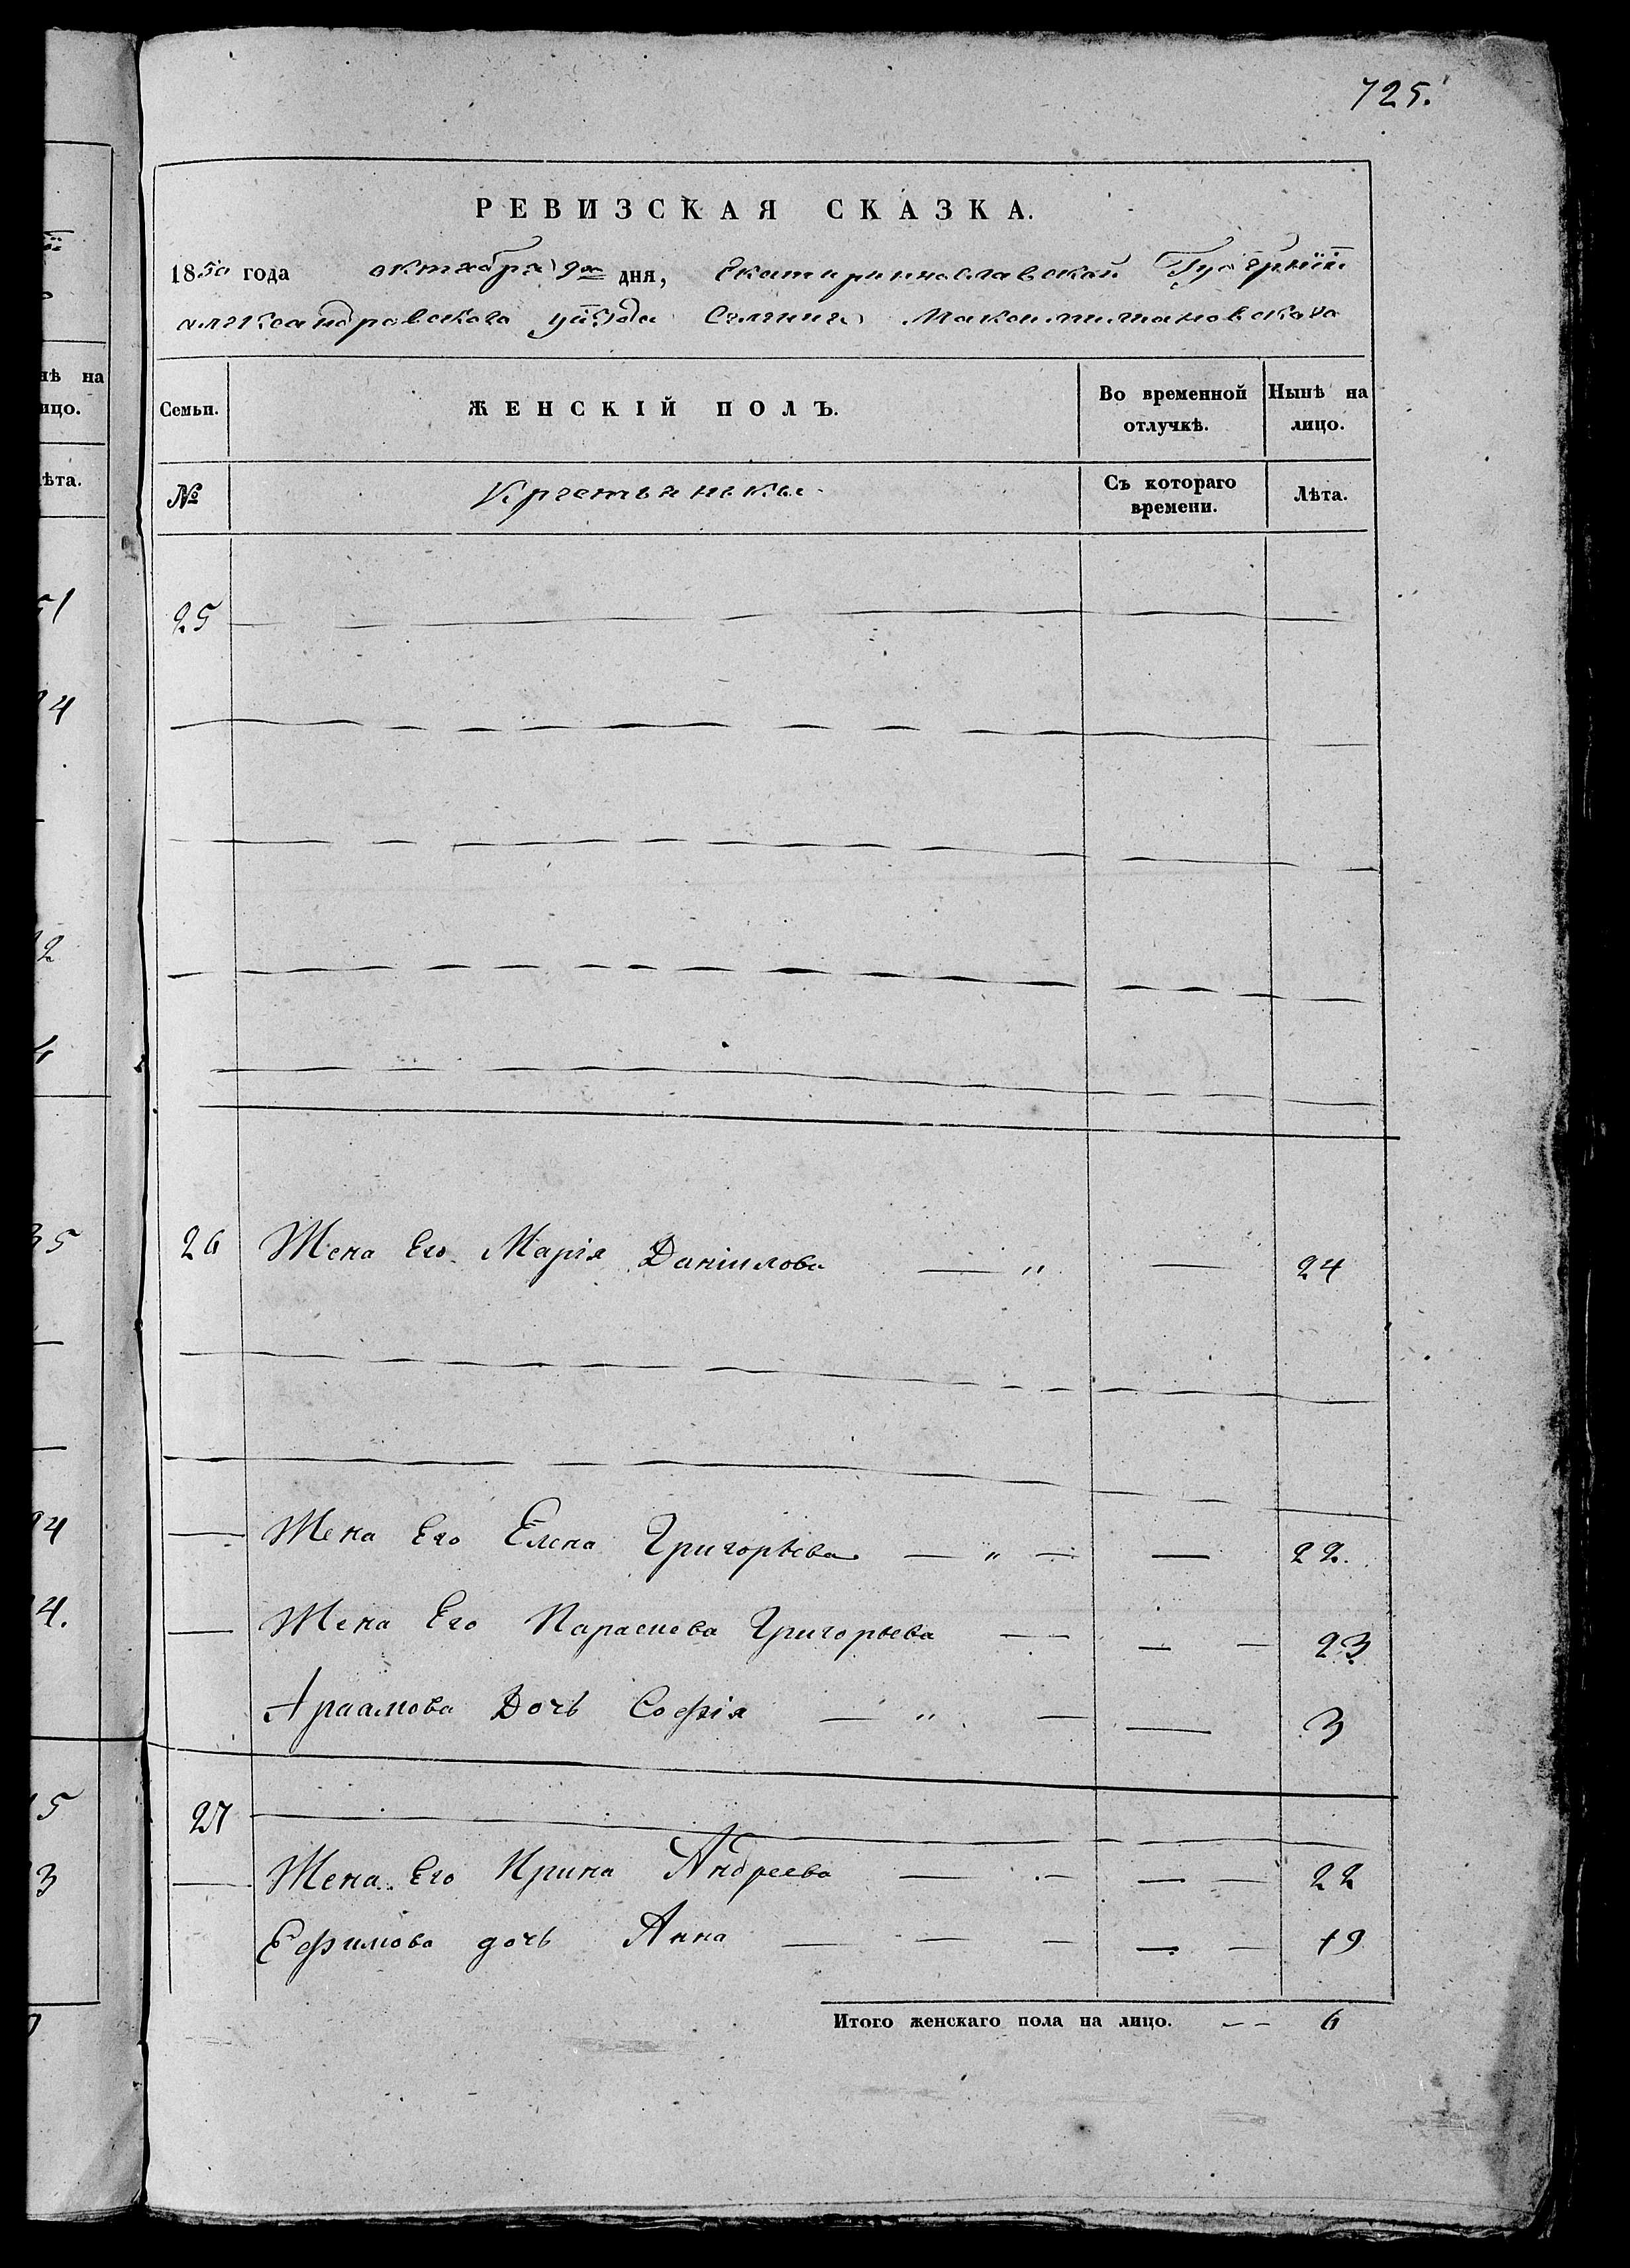 725.
РЕВИЗСКАЯ СКАЗКА.
1850 года октября 9го дня, Екатеринославской Губернїи
александровского уѣзда Селения Максимилиановскаго
Семьи. ЖЕНСКІЙ ПОЛЪ. Во временной отлучкѣ. Нынѣ на лицо.
№ Крестьянскаго Съ котораго времени. Лѣта.
25
26 Жена Его Марія Даніилова — " — 24
— Жена Его Елена Григорьева — " — — 22.
— Жена Его Параскева Григорьева — — — 23
Арамова Дочь Софія — " — — 3
27
— Жена Его Ирина Андреева — — — — 22
Ефимова дочь Анна — — — — — 19
Итого женскаго пола на лицо. — — 6
нѣ на
ицо.
ѣта.
51
14
12
4
35
14
4.
15
3